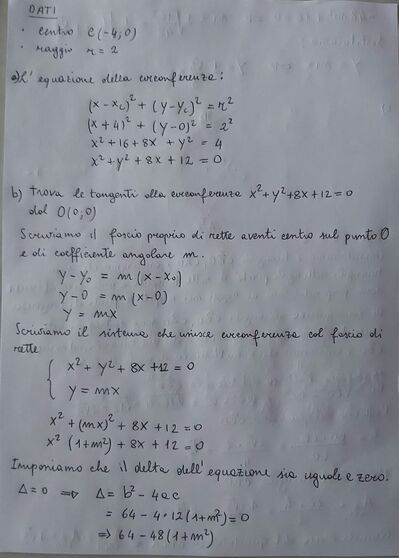 DATI
• centro C(-4;0)
• raggio r = 2
a) L'equazione della circonferenza:
(x - xc)² + (y - yc)² = r²
(x+4)² + (y-0)² = 2²
x² + 16 + 8x + y² = 4
x² + y² + 8x + 12 = 0
b) trova le tangenti alla circonferenza x²+y²+8x+12=0
dal O(0;0)
Scriviamo il fascio proprio di rette aventi centro sul punto O
e di coefficiente angolare m.
y - y₀ = m(x - x₀)
y - 0 = m(x-0)
y = mx
Scriviamo il sistema che unisce circonferenza col fascio di
rette
{ x² + y² + 8x + 12 = 0
y = mx
x² + (mx)² + 8x + 12 = 0
x² (1+m²) + 8x + 12 = 0
Imponiamo che il delta dell'equazione sia uguale a zero.
Δ = 0 ⇒ Δ = b² - 4ac
= 64 - 4·12(1+m²) = 0
⇒ 64 - 48(1+m²)